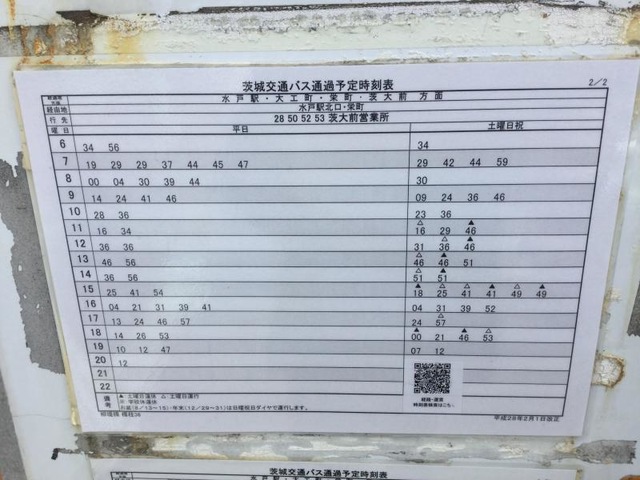 茨城交通バス通過予定時刻表 2/2
水戸駅・大工町・栄町・茨大前 方面
経由地 水戸駅北口・栄町
行先 28 50 52 53 茨大前営業所
曜日 平日 土曜日祝
6 34 56 34
7 19 29 29 37 44 45 47 29 42 44 59
8 00 04 30 39 44 30
9 14 24 41 46 09 24 36 46
10 28 36 23 36
△ ▲
11 16 34 16 29 46
△ ▲
12 36 36 31 36 46
△ ▲
13 46 56 46 46 51
△ ▲
14 36 56 51 51
▲ △ ▲ △ ▲
15 25 41 54 18 25 41 41 49 49
16 04 21 31 39 41 04 31 39 52
△
17 13 24 46 57 24 57
▲ ▲ △
18 14 26 53 00 21 46 53
19 10 12 47 07 12
20 12
21
22
備考 ▲:土曜日運休 △:土曜日運行
※:学校休運休
お盆(8/13~15)年末(12/29~31)は日曜祝日ダイヤで運行します。
経路・運賃
時刻表検索はこちら。
平成28年2月1日改正
茨城交通バス通過予定時刻表